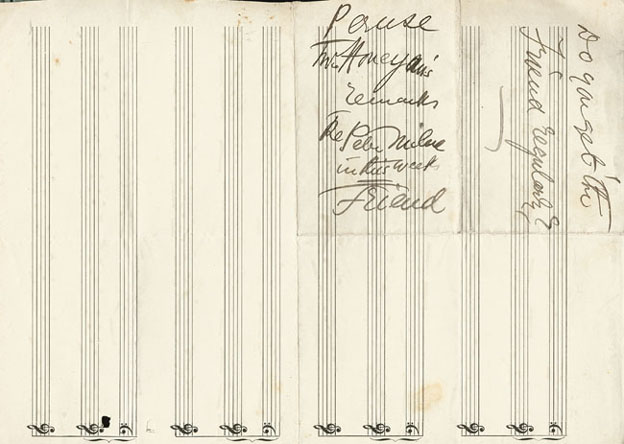 Pause
Mr Honeyan's
remarks
re Peter Milne
in this week's
Friend
Do you get the
Friend regularly?